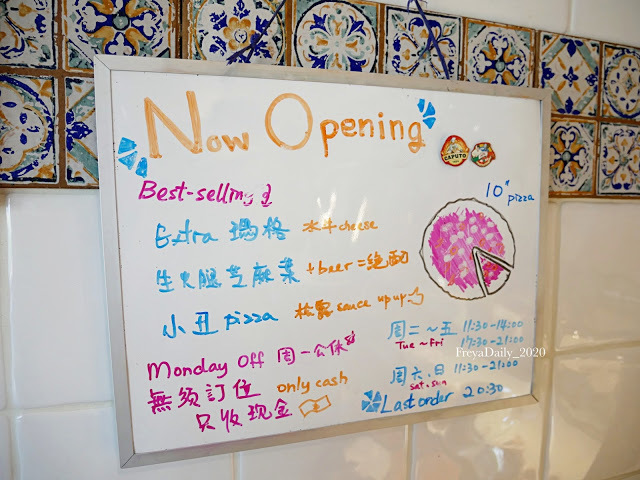 Now Opening
CAPUTO
Best-selling
10" pizza
Extra 瑪格 水牛cheese
生火腿芝麻葉 +beer=絕配
小丑 pizza 松露 sauce up up
Monday Off 周一公休
周二~五 11:30-14:00
Tue~Fri 17:30-21:00
FreyaDaily_2020
無須訂位 only cash
周六.日 11:30-21:00
sat.sun
只收现金
Last order 20:30